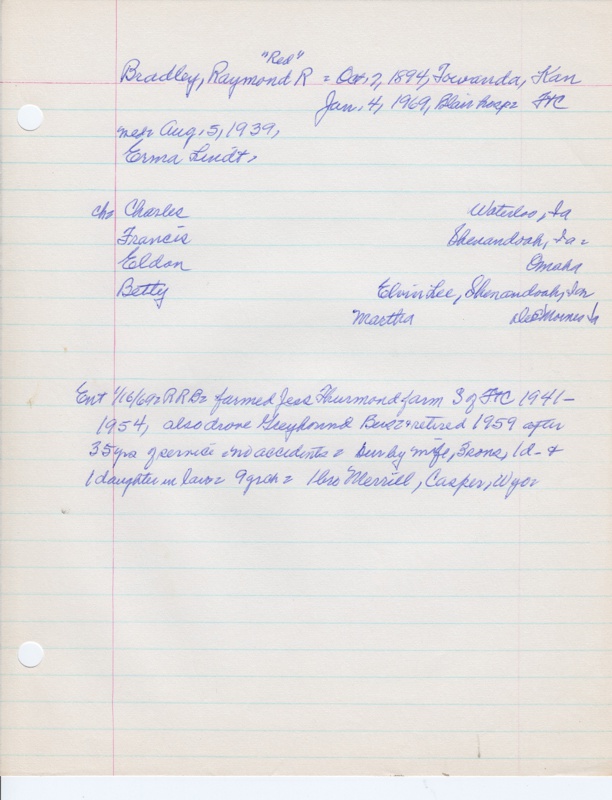 "Red"
Bradley, Raymond R = Oct, 7, 1894, Towanda, Kan
Jan, 4, 1969, Blair hosp = FtC
mar Aug, 5, 1939,
Erma Lindt,
chs Charles Waterloo, Ia
Francis Shenandoah, Ia =
Eldon Omaha
Betty Elvin Lee, Shenandoah, Ia =
Martha Des Moines Ia
Ent 1/16/69 = RRB = farmed Jess Thurmond farm 3 of FtC 1941-
1954, also drove Greyhound Bus = retired 1959 after
35 yrs of service = no accidents = sur by wife, 3 sons, 1 d - &
1 daughter in law = 9 grch = 1 bro Merrill, Casper, Wyo =